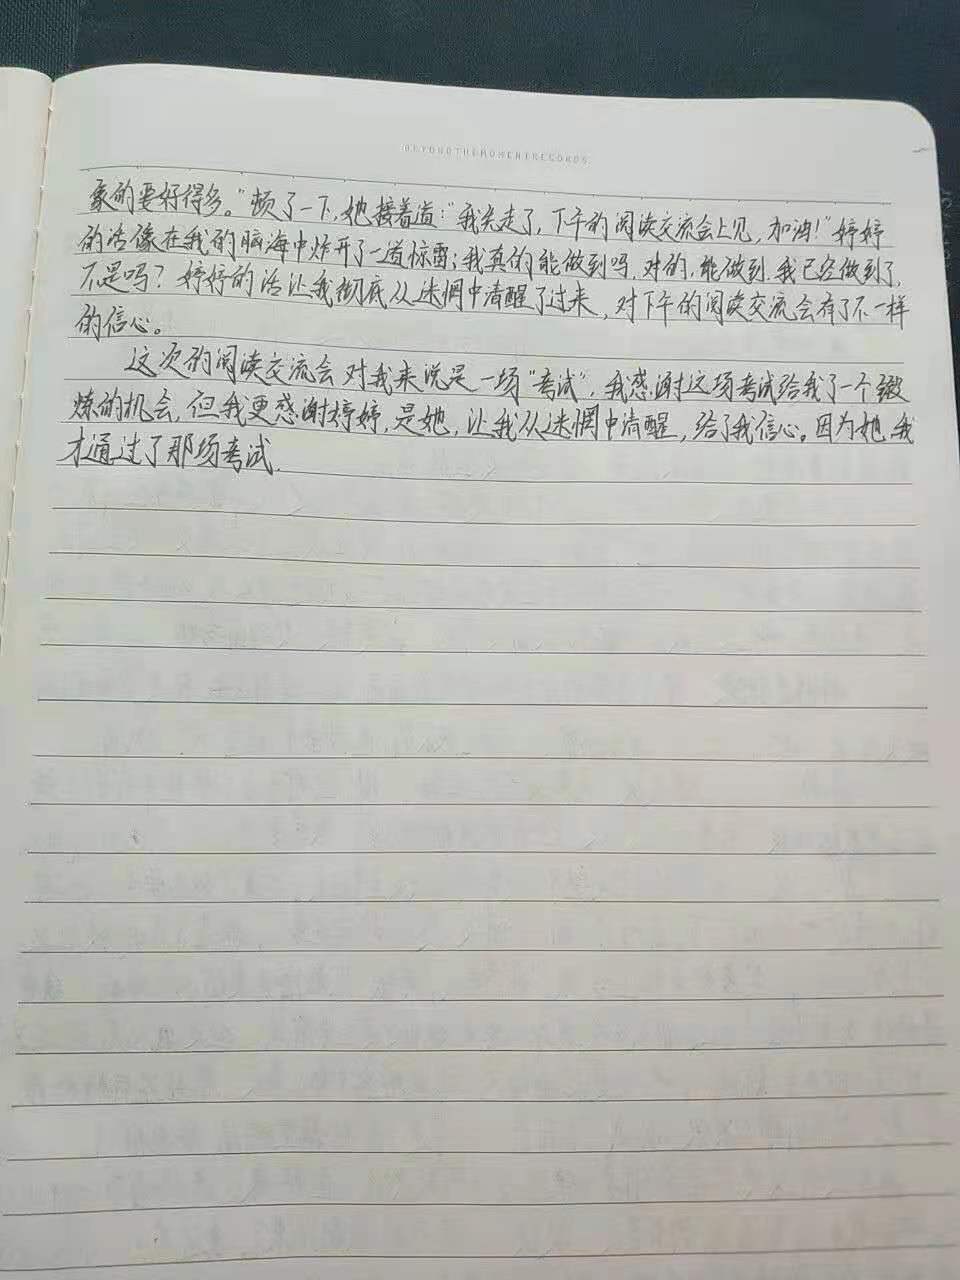 BEYONDTHEMOMENTRECORDS
象的要好得多。"顿了一下,她接着道:"我先走了,下午的阅读交流会上见,加油!"婷婷
的话像在我的脑海中炸开了一道惊雷;我真的能做到吗,对的,能做到,我已经做到了,
不是吗?婷婷的话让我彻底从迷惘中清醒了过来,对下午的阅读交流会有了不一样
的信心。
这次的阅读交流会对我来说是一场"考试",我感谢这场考试给我了一个锻
炼的机会,但我更感谢婷婷,是她,让我从迷惘中清醒,给了我信心。因为她,我
才通过了那场考试.